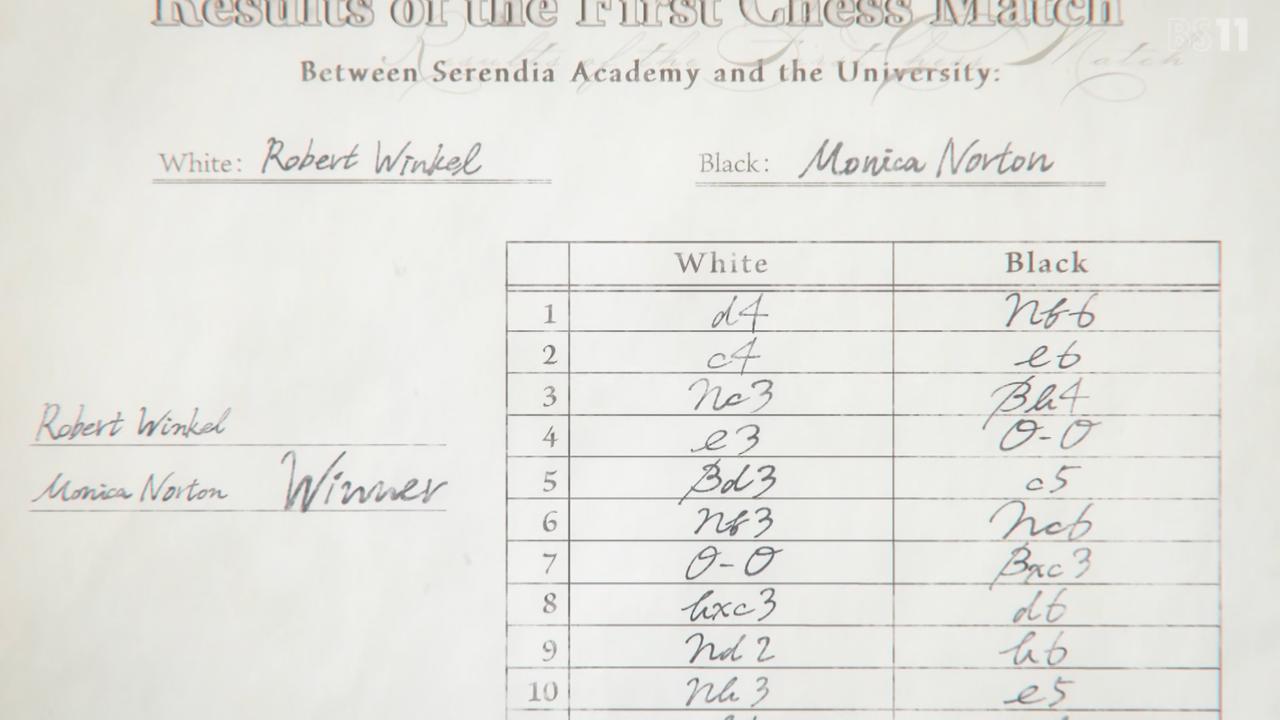 Results of the First Chess Match
Results of the First Chess Match
BS11
Between Serendia Academy and the University:
White: Robert Winkel
Black: Monica Norton
White Black
1 d4 Nf6
2 c4 e6
3 Nc3 Bb4
4 e3 O-O
5 Bd3 c5
6 Nf3 Nc6
7 O-O Bxc3
8 bxc3 d6
9 Nd2 b6
10 Nb3 e5
Robert Winkel
Monica Norton Winner